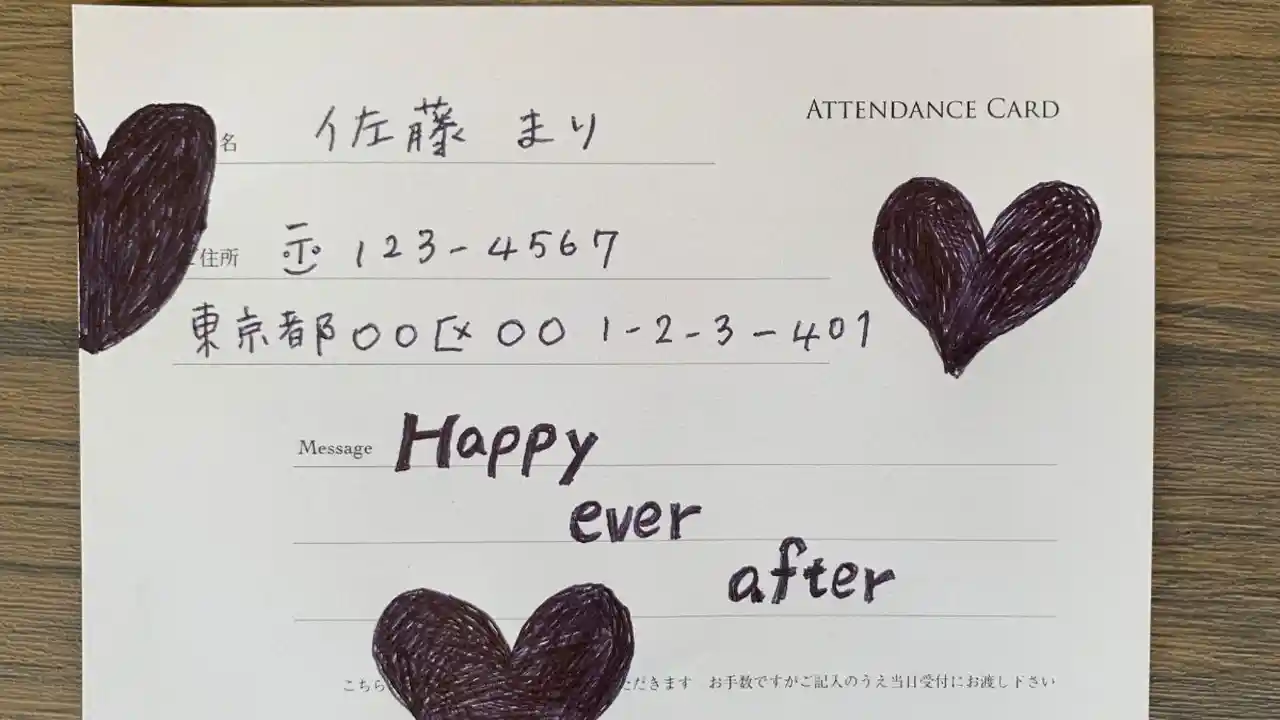 ATTENDANCE CARD
名 佐藤 まり
住所 〒 123-4567
東京都〇〇区〇〇 1-2-3-401
Message Happy
ever
after
こちら ただきます お手数ですがご記入のうえ当日受付にお渡し下さい